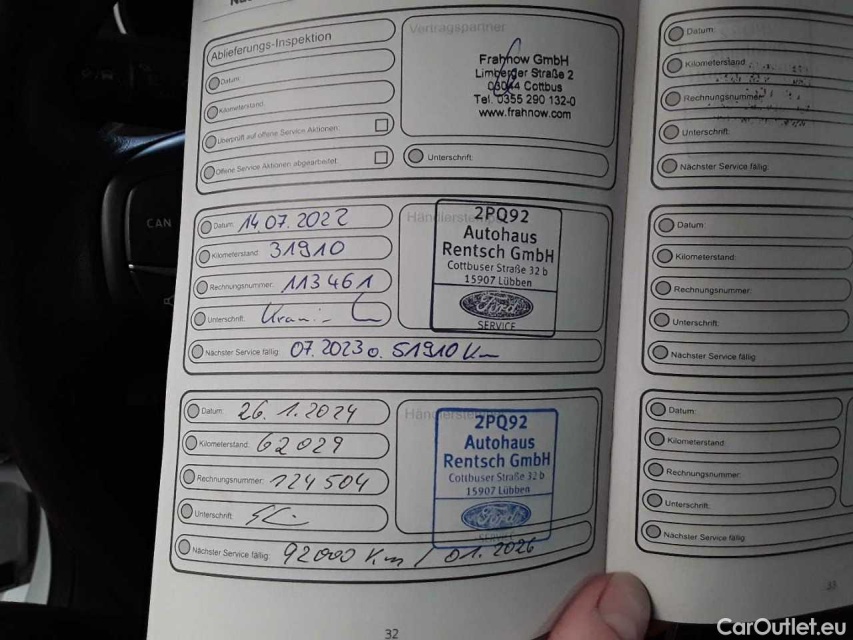 Ablieferungs-Inspektion
Datum:
Kilometerstand:
Überprüft auf offene Service Aktionen:
Offene Service Aktionen abgearbeitet:
Vertragspartner
Frahnow GmbH
Limberger Straße 2
03044 Cottbus
Tel. 0355 290 132-0
www.frahnow.com
Unterschrift:
Datum: 14.07.2022
Kilometerstand: 31910
Rechnungsnummer: 113461
Unterschrift:
Nächster Service fällig: 07.2023 o. 51910 Km
2PQ92
Autohaus
Rentsch GmbH
Cottbuser Straße 32 b
15907 Lübben
Ford
SERVICE
Datum: 26.1.2024
Kilometerstand: 62029
Rechnungsnummer: 124504
Unterschrift:
Nächster Service fällig: 92000 Km / 01.2026
2PQ92
Autohaus
Rentsch GmbH
Cottbuser Straße 32 b
15907 Lübben
Ford
SERVICE
32
Datum:
Kilometerstand:
Rechnungsnummer:
Unterschrift:
Nächster Service fällig:
Datum:
Kilometerstand:
Rechnungsnummer:
Unterschrift:
Nächster Service fällig
Datum:
Kilometerstand:
Rechnungsnummer:
Unterschrift:
Nächster Service fällig
33
CAN
CarOutlet.eu